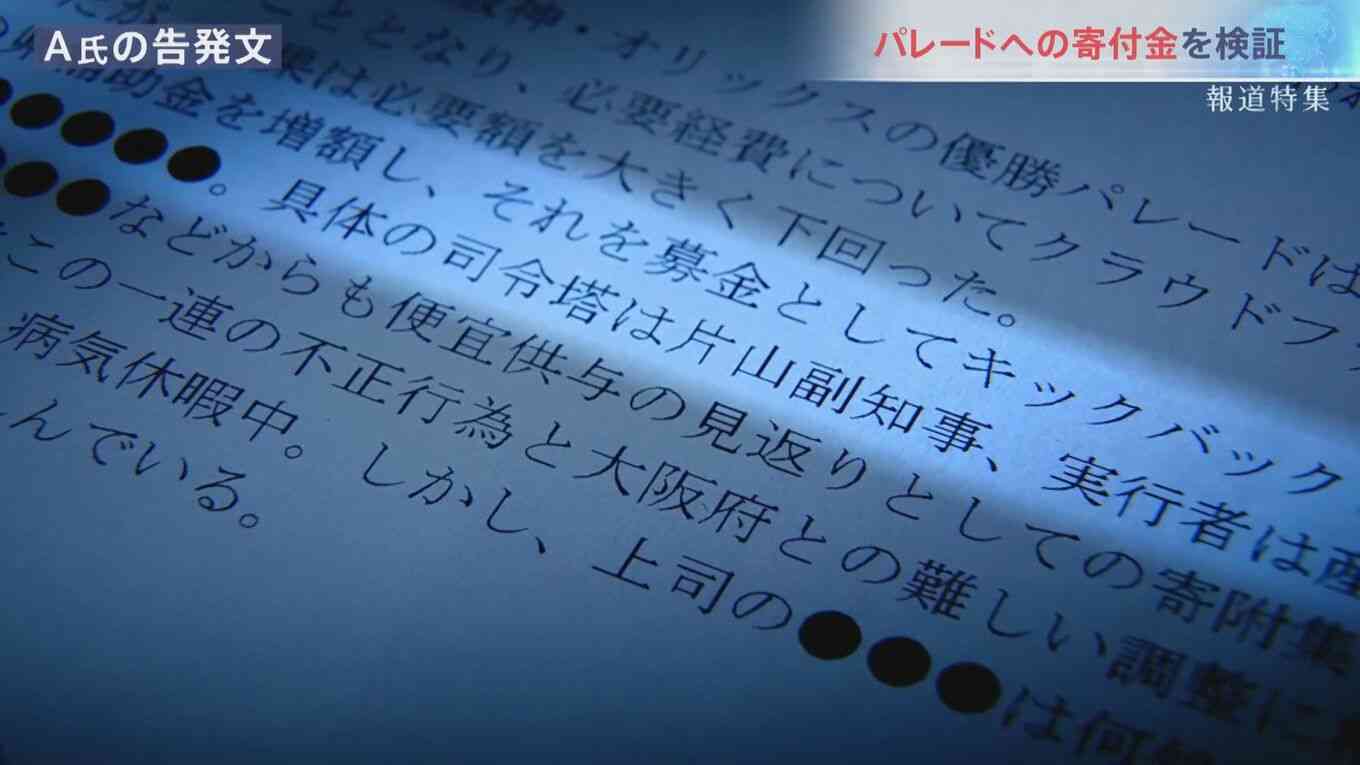 A氏の告発文
パレードへの寄付金を検証
報道特集
神・オリックスの優勝パレードは
こととなり、必要経費についてクラウドフ
果は必要額を大きく下回った。
補助金を増額し、それを募金としてキックバック
●●●●。具体の司令塔は片山副知事、実行者は産
●●などからも便宜供与の見返りとしての寄附集
この一連の不正行為と大阪府との難しい調整に
病気休暇中。しかし、上司の●●●は何
んでいる。